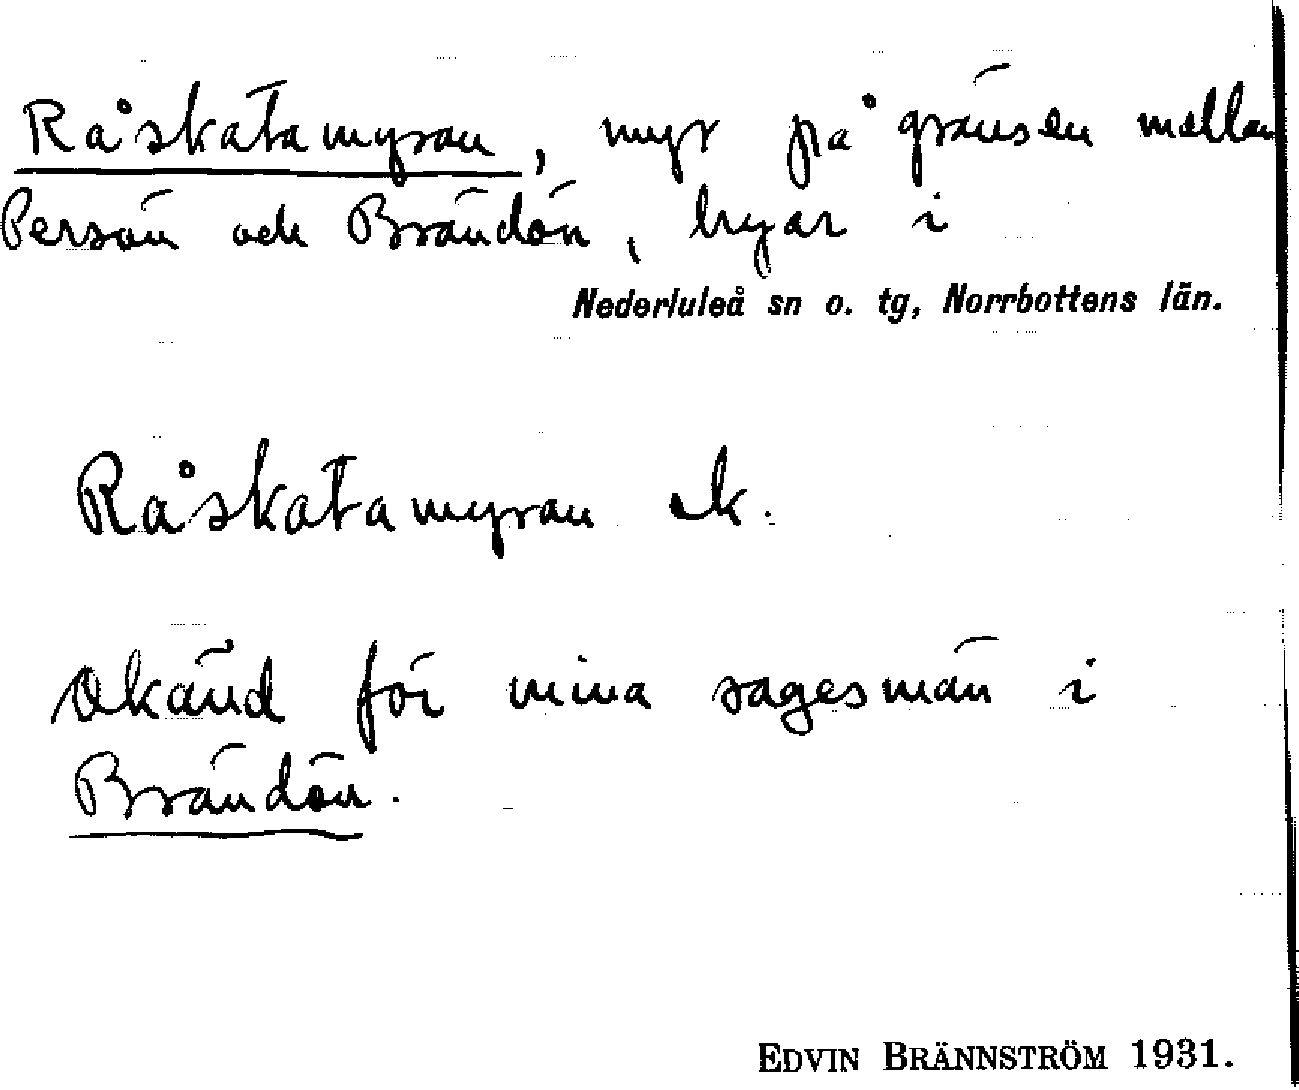 Råskatamyran, myr på gränsen mellan
Persön och Brändön, byar i
Nederluleå sn o. tg, Norrbottens län.
Råskatamyran ek.
Okänd för mina sagesmän i
Brändön.
EDVIN BRÄNNSTRÖM 1931.